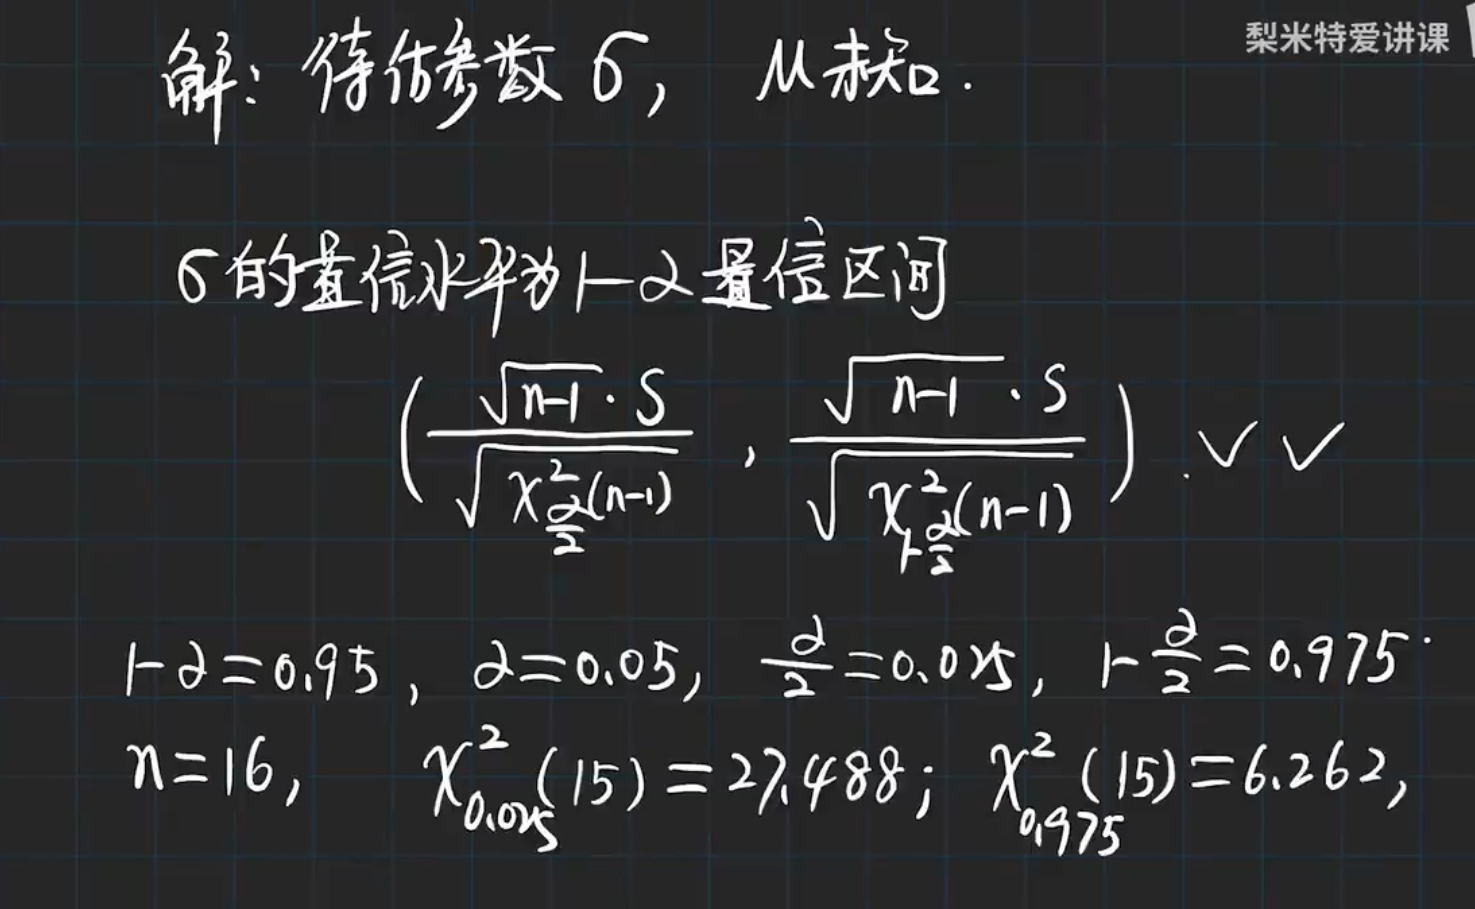 梨米特爱讲课
解：待估参数 σ， μ未知.
σ的置信水平为1-α置信区间
(√(n-1)·S / √(χ²_{α/2}(n-1)) , √(n-1)·S / √(χ²_{1-α/2}(n-1))) . ✓ ✓
1-α=0.95, α=0.05, α/2=0.025, 1-α/2=0.975.
n=16, χ²_{0.025}(15)=27.488; χ²_{0.975}(15)=6.262,